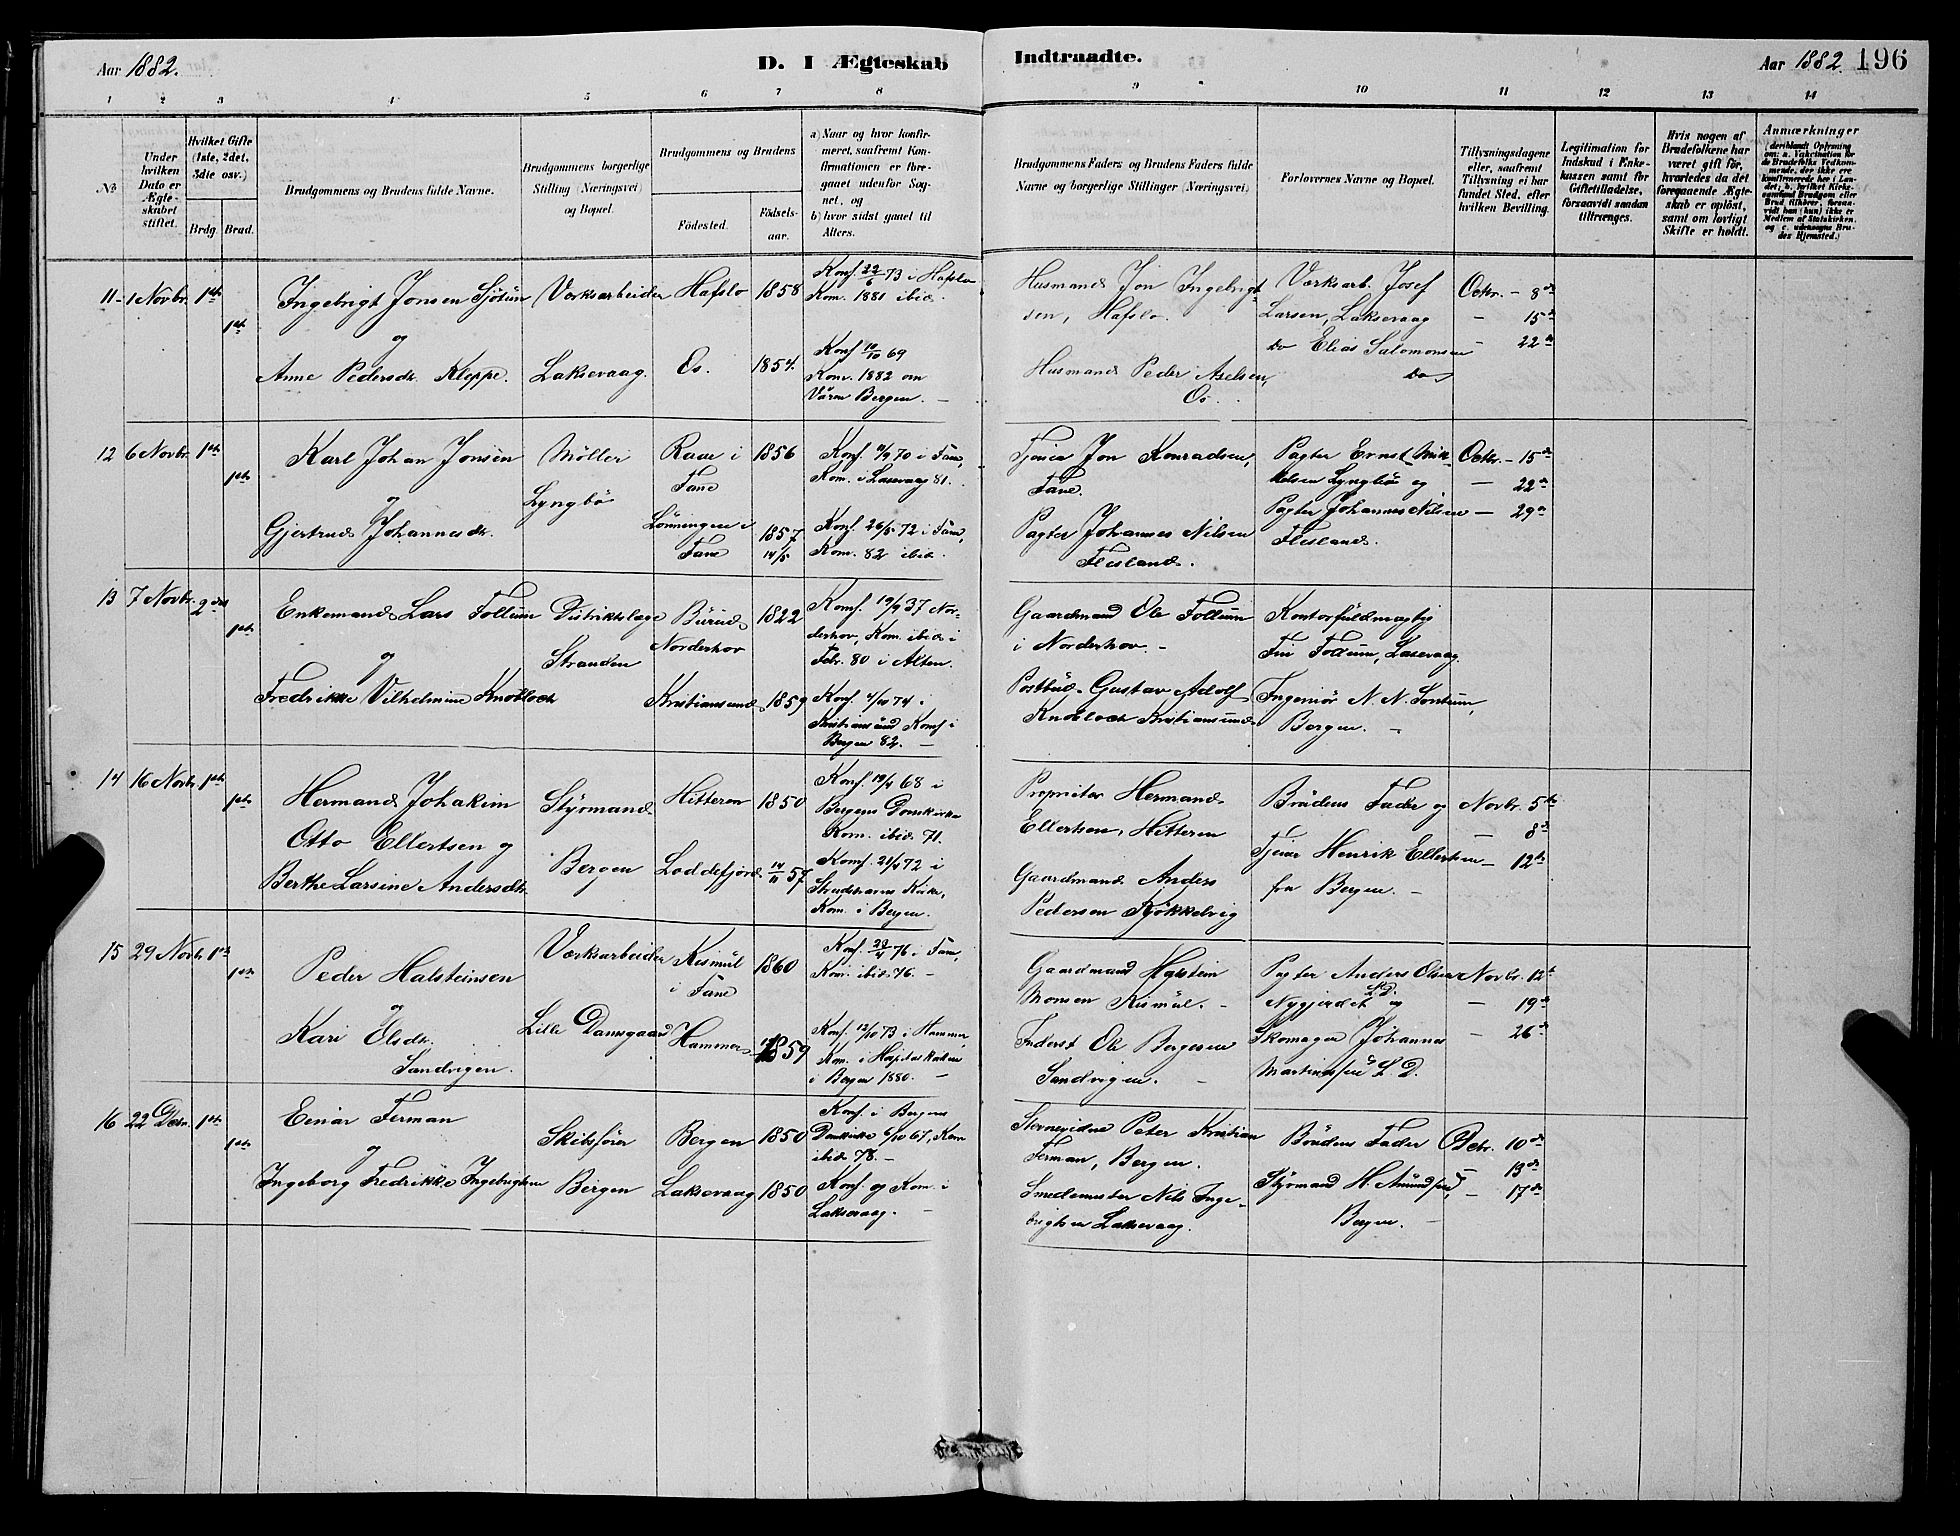 Aar 1882.
D. I Ægteskab Indtraadte.
Aar 1882. 196
1 2 3 4 5 6 7 8 9 10 11 12 13 14
№
Under hvilken Dato er Ægteskabet stiftet.
Hvilket Gifte (1ste, 2det, 3die osv.)
Brdg. Brud.
Brudgommens og Brudens fulde Navne.
Brudgommens borgerlige Stilling (Næringsvei) og Bopæl.
Brudgommens og Brudens
Fødested. Fødselsaar.
a) Naar og hvor konfirmeret, saafremt Konfirmationen er foregaaet udenfor Sognet, og
b) hvor sidst gaaet til Alters.
Brudgommens Faders og Brudens Faders fulde Navne og borgerlige Stillinger (Næringsvei)
Forlovernes Navne og Bopæl.
Tillysningsdagene eller, saafremt Tillysning ei har fundet Sted, efter hvilken Bevilling.
Legitimation for Indskud i Enkekassen samt for Giftetilladelse, forsaavidt saadan tiltrænges.
Hvis nogen af Brudefolkene har været gift før, hvorledes da det foregaaende Ægteskab er opløst, samt om lovligt Skifte er holdt.
Anmærkninger
(deriblandt Oplysning om: a. Vakcination for de Brudefolks Vedkommende, der ikke ere konfirmerede her i Landet; b. hvilket Kirkesamfund Brudgom eller Brud tilhører, forsaavidt han (hun) ikke er Medlem af Statskirken, og c. udensogns Brudes Hjemsted.)
11 1 Novbr. 1ste 1ste
Ingebrigt Jonsen Sjötun
og
Anne Pedersdr. Kleppe.
Værksarbeider
Laksevaag.
Hafslo 1858
Os. 1854.
Konf. 22/6 73 i Hafslo
Kom. 1881 ibid.
Konf 10/10 69
Kom. 1882 om
Vaaren Bergen. —
Husmand Jon Ingebrigt-
sen, Hafslo.
Husmand Peder Axelsen,
Os.
Værksarb. Josef
Larsen, Laksevaag
do Elias Salomonsen
do
Octr. — 8de
— 15de
— 22de
12 6 Novbr. 1ste 1ste
Karl Johan Jonsen
og
Gjertrud Johannesdr.
Møller
Lyngbö
Raae i
Fane
1856
Lønningen i
Fane
1857
14/5
Konf. 11/9 70 i Fane,
Kom. i Laxevaag 81.
Konf. 26/5 72 i Fane,
Kom. 82 ibid.
Tjener Jon Konradsen,
Fane.
Pagter Johannes Nilsen
Flesland.
Pagter Ernst Mik-
kelsen Lyngbö og
Pagter Johannes Nilsen
Flesland.
Octr. — 15de
— 22de
— 29de
13 7 Novbr. 2det 1ste
Enkemand Lars Follum
og
Fredrikke Vilhelmine Knobloch
Distriktslæge
Stranden
Burud
Norderhov
1822
Kristiansund 1859
Konf. 19/9 37 Nor-
derhov, Kom. ibid i
Febr. 80 i Alten.
Konf. 4/10 74 i
Kristiansund Konf i
Bergen 82. —
Gaardmand Ole Follum
i Norderhov. —
Postbud Gustav Adolf
Knobloch Kristiansund
Kontorfuldmægtig
Follum, Laxevaag.
Ingeniør N. N. Sontum,
Bergen. —
14 16 Novbr 1ste 1ste
Hermand Johakim
Otto Ellertsen og
Berthe Larsine Andersdtr.
Styrmand
Bergen
Hitteren 1850
Loddefjord 14/11 57
Konf. 19/4 68 i
Bergens Domkirke
Kom. ibid. 71.
Konf. 21/4 72 i
Strudshavns Kirke,
Kom. i Bergen.
Proprietær Hermand
Ellertsen, Hitteren
Gaardmand Anders
Pedersen Kjøkkelvig
Brudens Fader og
Tjener Henrik Ellertsen
fra Bergen. —
Novbr. 5te
— 8de
— 12te
15 29 Novbr 1ste 1ste
Peder Halsteinsen
og
Kari Olsdr.
Sandvigen.
Værksarbeider
Lille Damsgaard
Kismul
i Fane
1860
Hammer 1859
Konf. 23/4 76 i Fane,
Kom. ibid. 76. —
Konf. 12/10 73 i Hammer,
Kom. i Hospitalskirken
i Bergen 1880. —
Gaardmand Halstein
Monsen Kismul. —
Inderst Ole Bergesen
Sandvigen. —
Pagter Anders Olsen
Nygjerdet L.D. og
Skomager Johannes
Martinussen L. D.
Novbr. 12te
— 19de
— 26de
16 22 Decbr. 1ste 1ste
Einar Ferman
og
Ingeborg Fredrikke Ingebrigtsen
Skibsfører
Bergen
Bergen 1850
Laksevaag 1850
Konf. i Bergens
Domkirke 6/10 67, Kom
ibid. 78. —
Konf. og Kom. i
Laksevaag. —
Stevnevidne Peter Kristian
Ferman, Bergen.
Smedemester Nils Inge-
brigtsen Laksevaag.
Brudens Fader
Styrmand H. Amundsen,
Bergen. —
Decbr. 10de
— 13de
— 17de